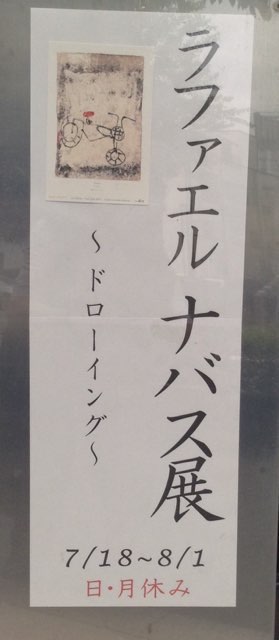 ラファエル ナバス展
～ドローイング～
7/18~8/1
日・月休み